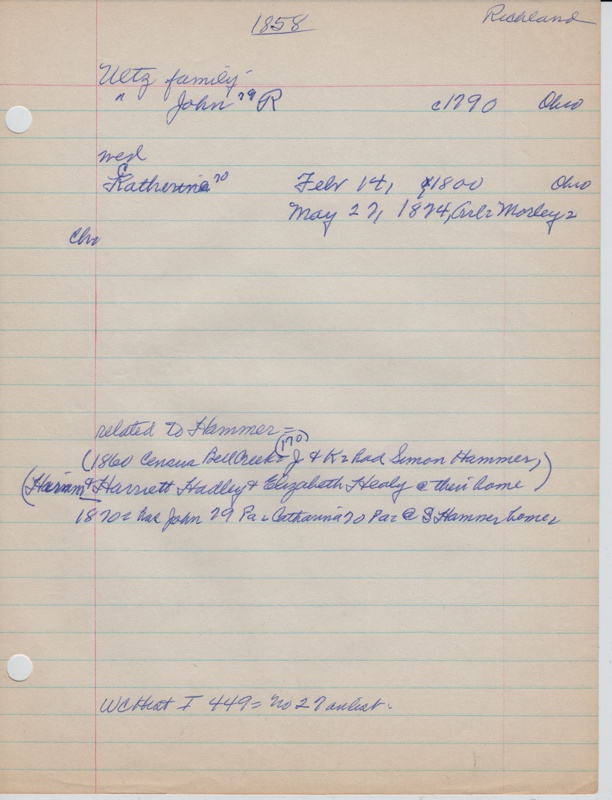 1858
Richland
Ultz family-
" John 79 R c1790 Ohio
wed
Katherine 70 Febr 14, 1800 Ohio
May 27, 1874,
Chr
related to Hammer =
(170)
(1860 Census Bell Creek = J & K = had Simon Hammer,
(Hiriam & Harriett Hadley & Elizabeth Healy @ their home)
1870 = has John 79 Pa = Catharina 70 Pa = @ S Hammer home =
WCHist I 449 = no 27